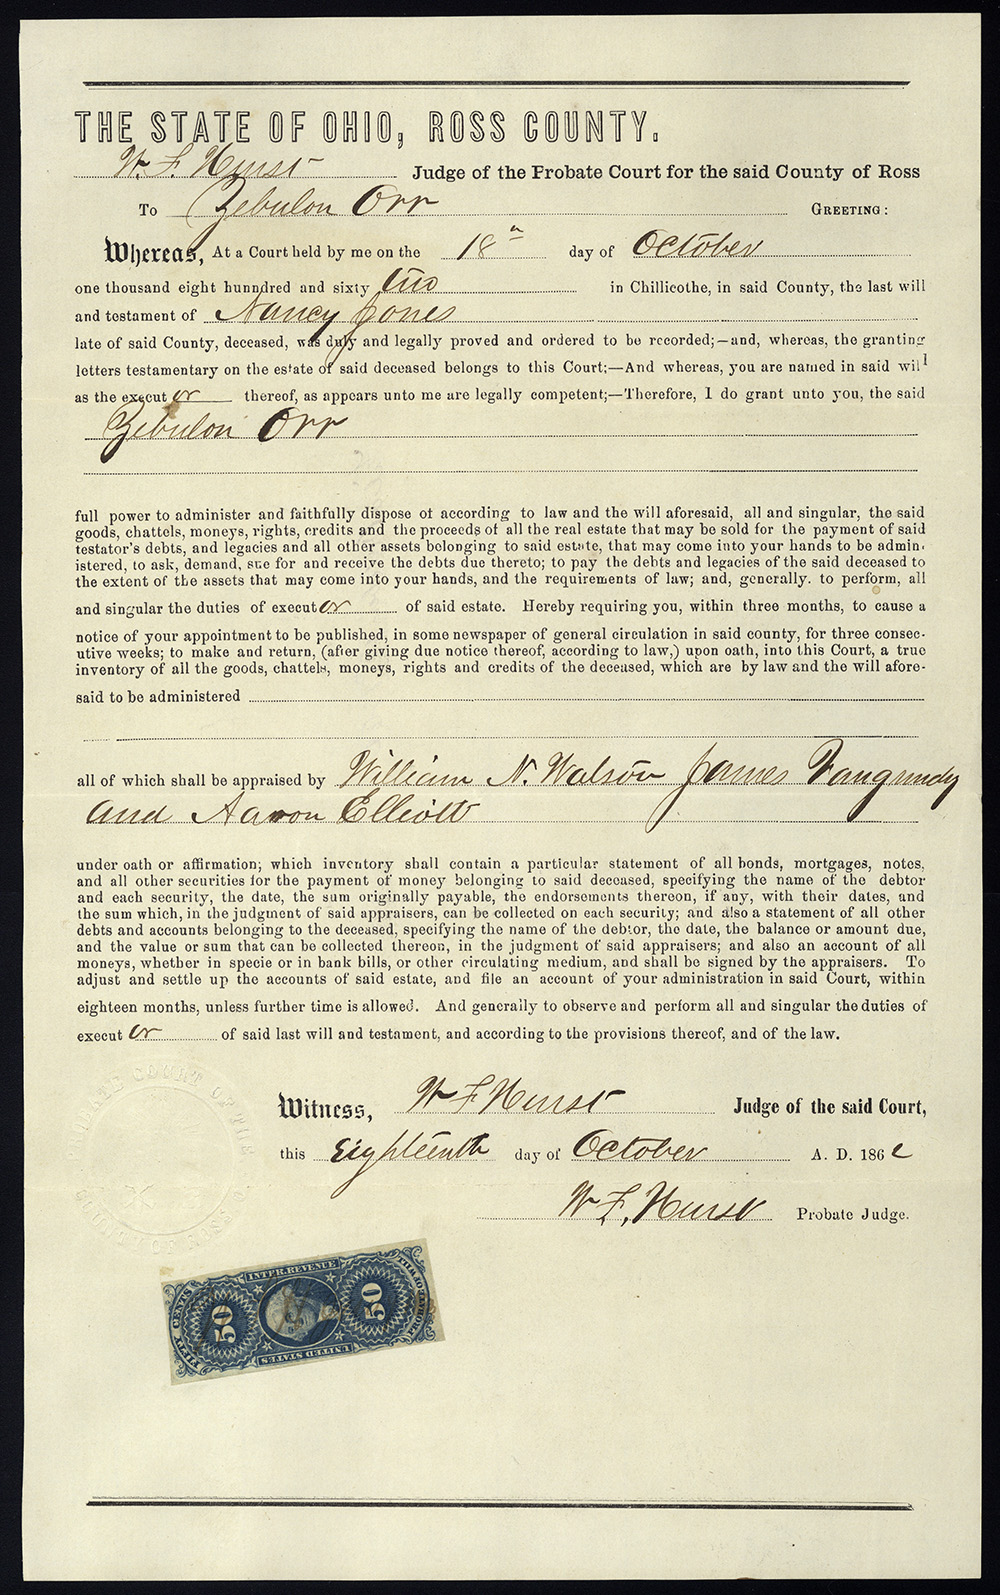 THE STATE OF OHIO, ROSS COUNTY.
W. F. Hurst Judge of the Probate Court for the said County of Ross
To Zebulon Orr GREETING:
Whereas, At a Court held by me on the 18" day of October
one thousand eight hunndred and sixty two in Chillicothe, in said County, the last will
and testament of Nancy Jones
late of said County, deceased, was duly and legally proved and ordered to be recorded;—and, whereas, the granting
letters testamentary on the estate of said deceased belongs to this Court;—And whereas, you are named in said will
as the execut or thereof, as appears unto me are legally competent;—Therefore, I do grant unto you, the said
Zebulon Orr
full power to administer and faithfully dispose of according to law and the will aforesaid, all and singular, the said
goods, chattels, moneys, rights, credits and the proceeds of all the real estate that may be sold for the payment of said
testator's debts, and legacies and all other assets belonging to said estate, that may come into your hands to be admin-
istered, to ask, demand, sue for and receive the debts due thereto; to pay the debts and legacies of the said deceased to
the extent of the assets that may come into your hands, and the requirements of law; and, generally. to perform, all
and singular the duties of execut or of said estate. Hereby requiring you, within three months, to cause a
notice of your appointment to be published, in some newspaper of general circulation in said county, for three consec-
utive weeks; to make and return, (after giving due notice thereof, according to law,) upon oath, into this Court, a true
inventory of all the goods, chattels, moneys, rights and credits of the deceased, which are by law and the will afore-
said to be administered
all of which shall be appraised by William N. Watson James Vangundy
and Aaron Elliott
under oath or affirmation; which inventory shall contain a particular statement of all bonds, mortgages, notes,
and all other securities for the payment of money belonging to said deceased, specifying the name of the debtor
and each security, the date, the sum originally payable, the endorsements thereon, if any, with their dates, and
the sum which, in the judgment of said appraisers, can be collected on each security; and also a statement of all other
debts and accounts belonging to the deceased, specifying the name of the debtor, the date, the balance or amount due,
and the value or sum that can be collected thereon, in the judgment of said appraisers; and also an account of all
moneys, whether in specie or in bank bills, or other circulating medium, and shall be signed by the appraisers. To
adjust and settle up the accounts of said estate, and file an account of your administration in said Court, within
eighteen months, unless further time is allowed. And generally to observe and perform all and singular the duties of
execut or of said last will and testament, and according to the provisions thereof, and of the law.
Witness, W F Hurst Judge of the said Court,
this Eighteenth day of October A. D. 1862
W F. Hurst Probate Judge.
PROBATE COURT OF THE COUNTY OF ROSS O.
INTER. REVENUE
FIFTY CENTS
50
50
UNITED STATES